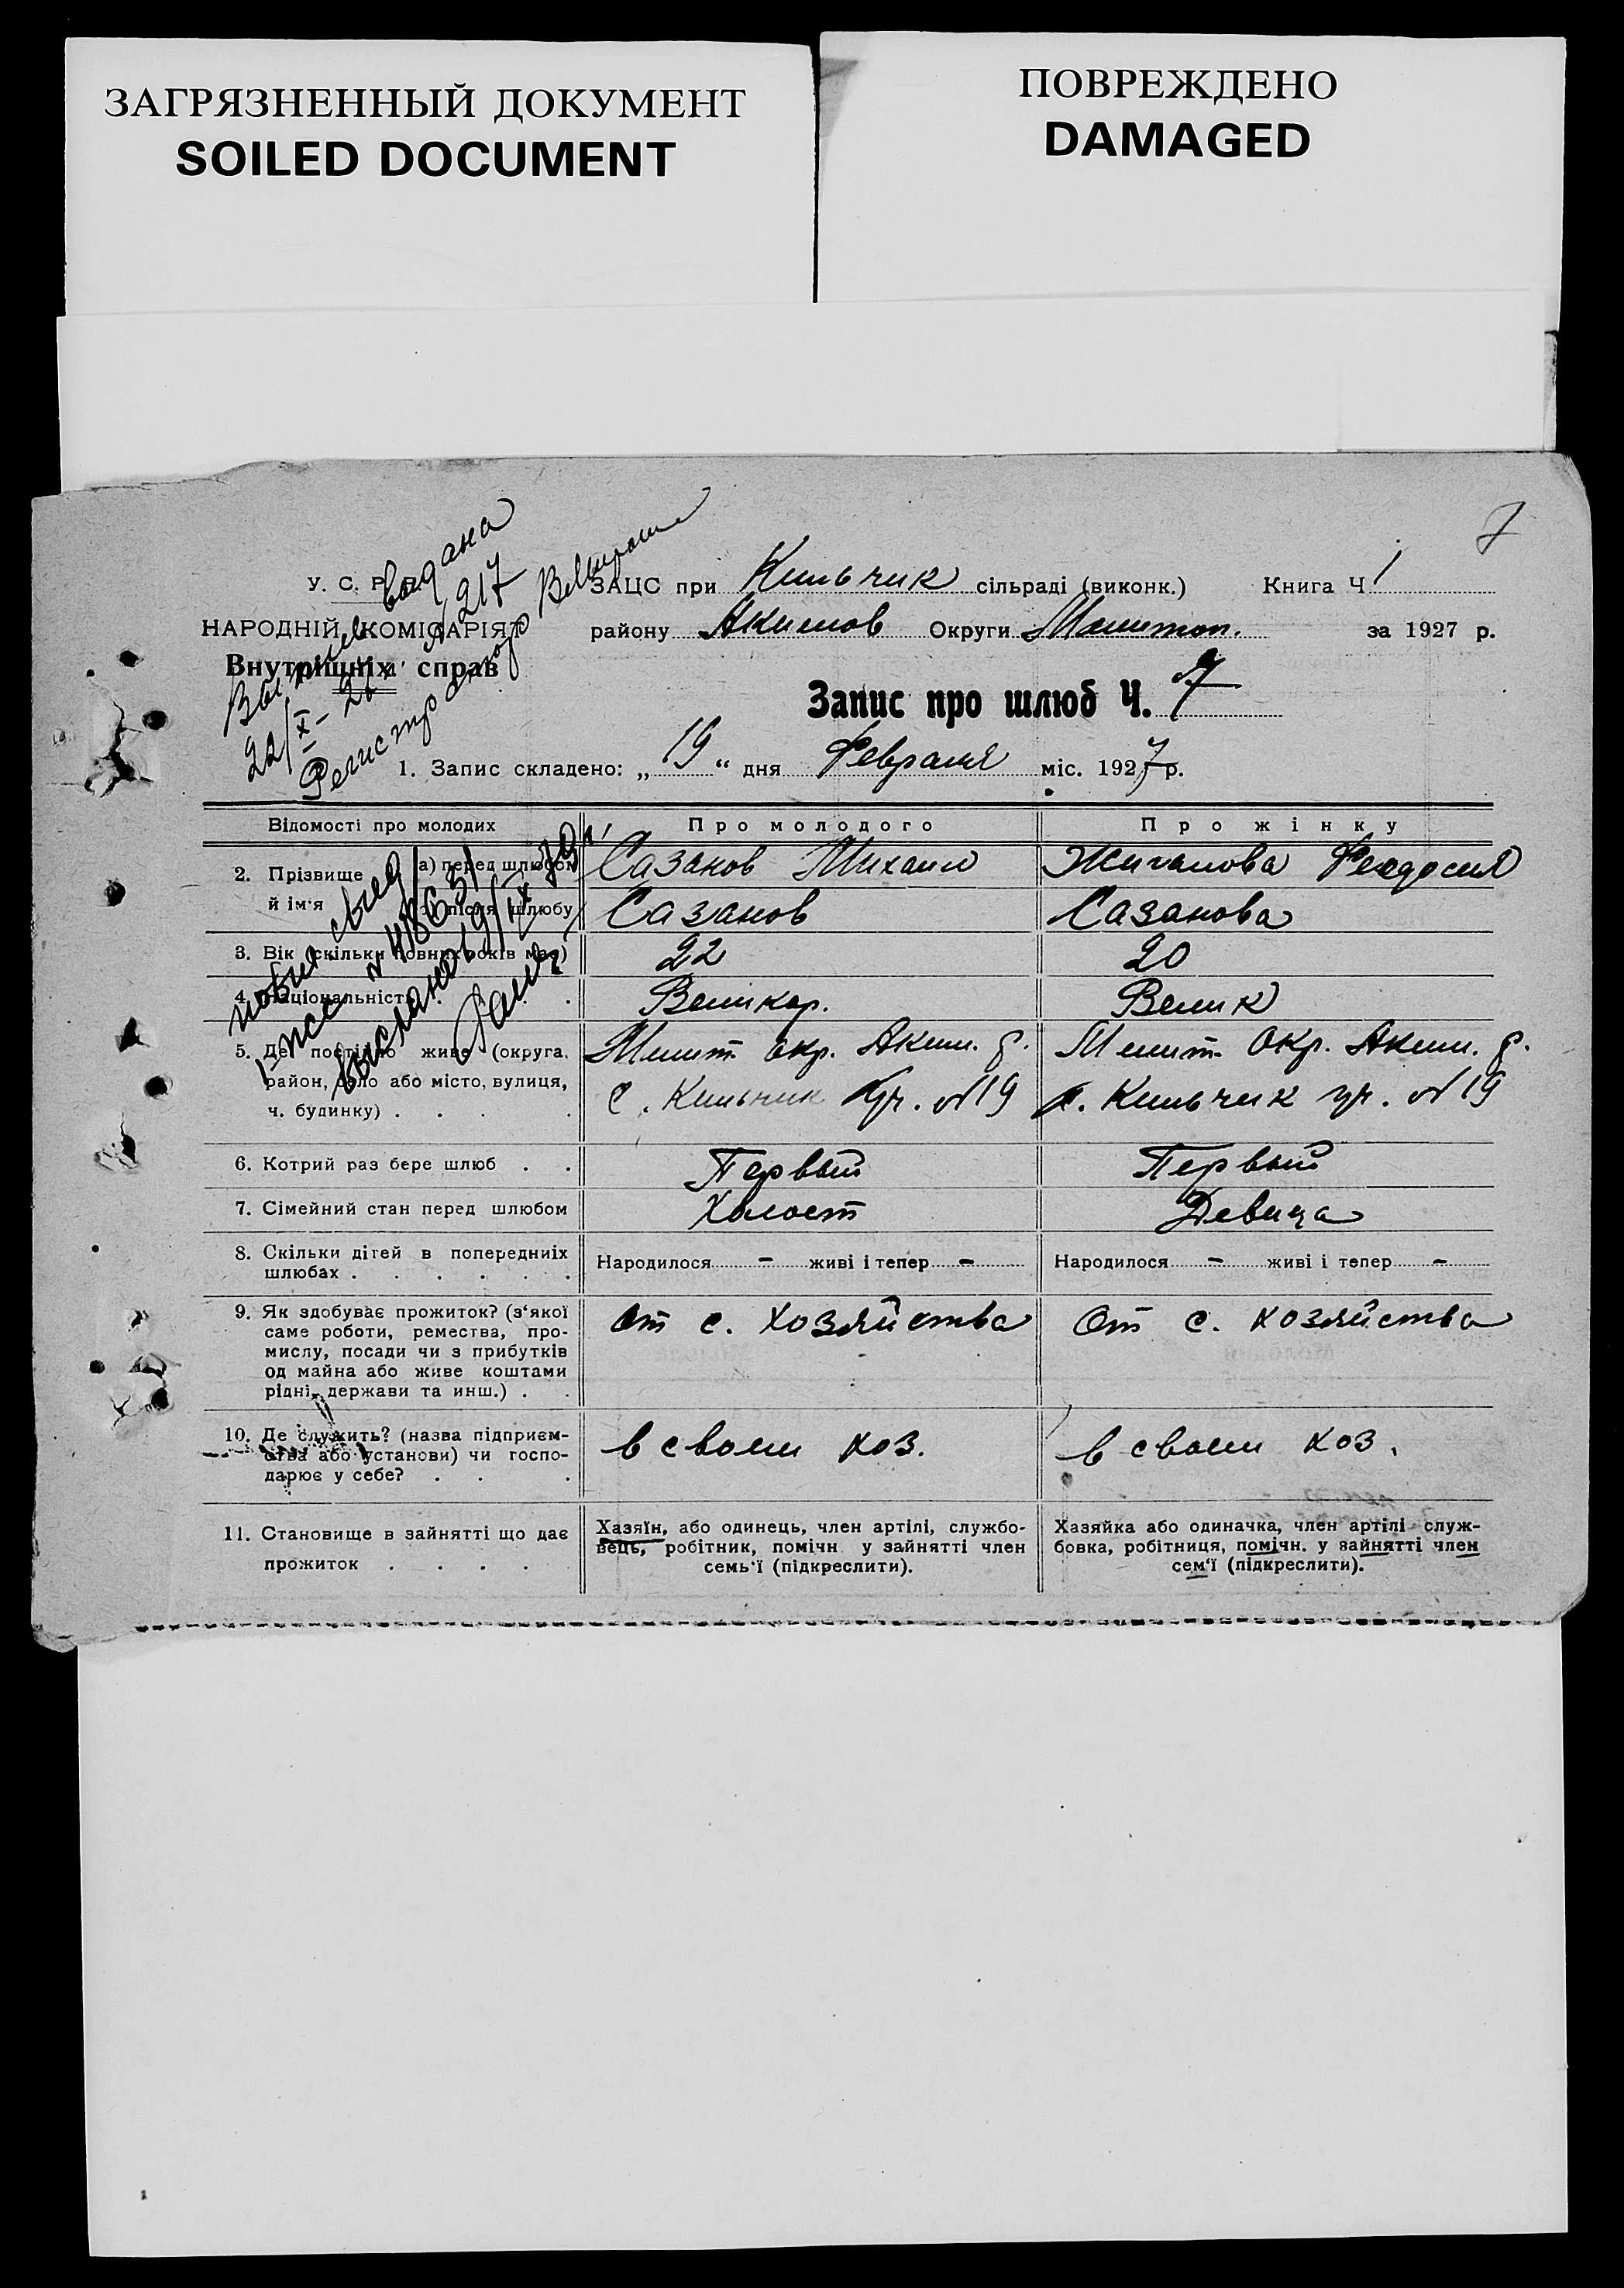 ЗАГРЯЗНЕННЫЙ ДОКУМЕНТ
SOILED DOCUMENT
ПОВРЕЖДЕНО
DAMAGED
7
У. С. Р. Р.
НАРОДНІЙ КОМІСАРІЯТ
Внутрішніх справ
выдана
22/X- 26 217
ЗАЦС при Кильчик сільраді (виконк.) Книга Ч 1
району Акимов Округи Мелитоп. за 1927 р.
Запис про шлюб Ч. 7
1. Запис складено: „ 19 “ дня Февраля міс. 1927 р.
Відомості про молодих Про молодого Про жінку
2. Прізвище й ім'я а) перед шлюбом Сазанов Михаил Жигалова Феадосия
б) після шлюбу Сазанов Сазанова
3. Вік (скільки повних років має) 22 20
4. Національність . . . Великор. Велик
5. Де постійно живе (округа, Мелит. окр. Аким. р. Мелит. Окр. Аким. р.
район, село або місто, вулиця, с. Кильчик ур. №19 с. Кильчик ур. №19
ч. будинку) . . . .
новый свид
высланов 9/IX
6. Котрий раз бере шлюб . . Первый Первый
7. Сімейний стан перед шлюбом Холост Девица
8. Скільки дітей в попередниіх
шлюбах . . . . . . Народилося - живі і тепер - Народилося - живі і тепер -
9. Як здобуває прожиток? (з'якої От с. хозяйства От с. хозяйства
саме роботи, ремества, про-
мислу, посади чи з прибутків
од майна або живе коштами
рідні, держави та инш.) . .
10. Де служить? (назва підприєм- в своем хоз. в своем хоз.
ства або установи) чи госпо-
дарює у себе? . . .
11. Становище в зайнятті що дає
прожиток . . . .
Хазяїн, або одинець, член артілі, службо-
вець, робітник, помічн у зайнятті член
семь'ї (підкреслити).
Хазяйка або одиначка, член артілі служ-
бовка, робітниця, помічн. у зайнятті член
сем'ї (підкреслити).